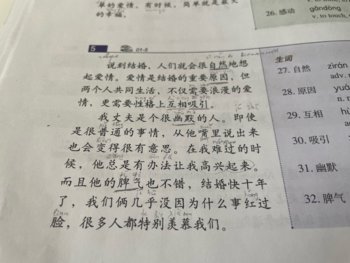 单的爱情,有时候,简单就是最大
的幸福。
5
说到结婚,人们就会很自然地想
起爱情。爱情是结婚的重要原因,但
两个人共同生活,不仅需要浪漫的爱
情,更需要性格上互相吸引。
我丈夫是个很幽默的人。即使
是很普通的事情,从他嘴里说出来
也会变得很有意思。在我难过的时
候,他总是有办法让我高兴起来。
而且他的脾气也不错,结婚快十年
了,我们俩几乎没因为什么事红过
脸,很多人都特别羡慕我们。
26. 感动 gǎndòng
v. to touch,
生词
27. 自然 zìrán
28. 原因 yuá
29. 互相 hù
30. 吸引
31. 幽默
32. 脾气